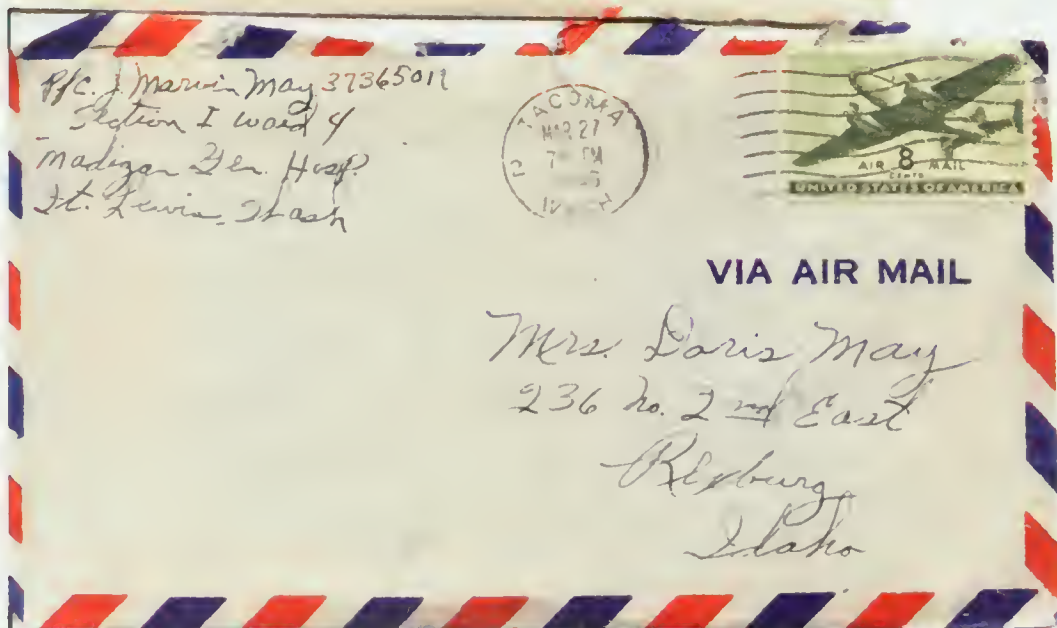 Pfc. J Marvin May 37365011
Section I Ward 4
Madigan Gen. Hosp.
Ft. Lewis, Wash
TACOMA
MAR 27
7 PM
WASH
AIR 8 MAIL
CENTS
UNITED STATES OF AMERICA
VIA AIR MAIL
Mrs. Doris May
236 No. 2nd East
Rexburg
Idaho